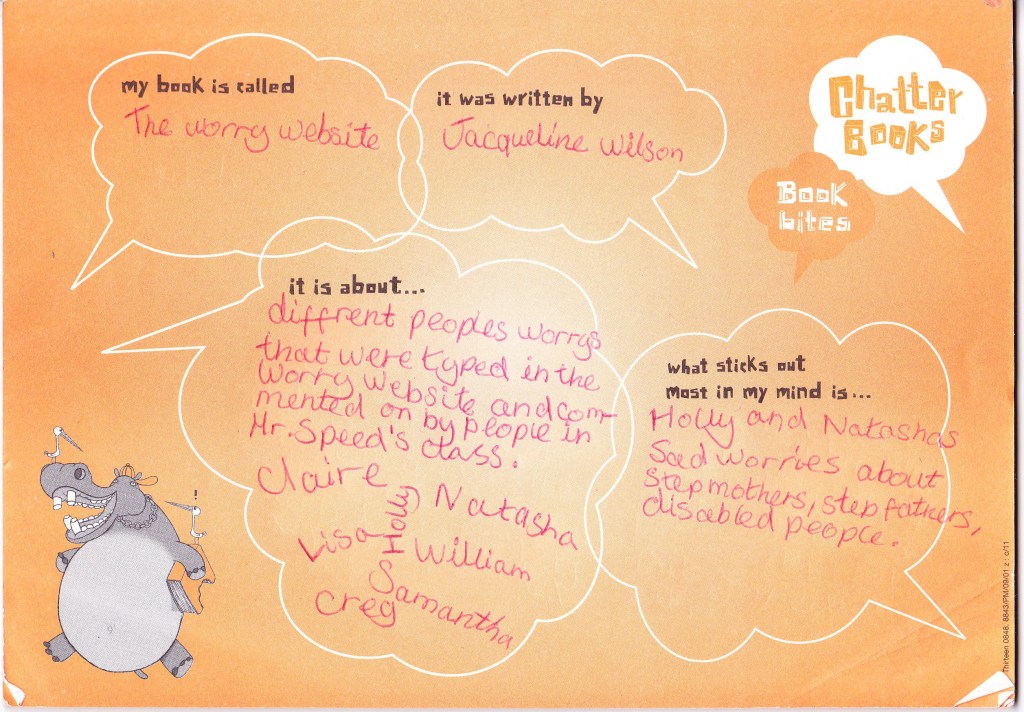 my book is called
The worry website
it was written by
Jacqueline Wilson
Chatter
Books
Book
bites
it is about...
diffrent peoples worrys
that were typed in the
worry website and com-
mented on by people in
Mr. Speed's class.
Claire
Natasha
Holly
Lisa
William
Samantha
Creg
what sticks out
most in my mind is...
Holly and Natashas
Sad worries about
stepmothers, step fathers,
disabled people.
!
Thirteen 0646. 8643/PM/08/01 z : c/11